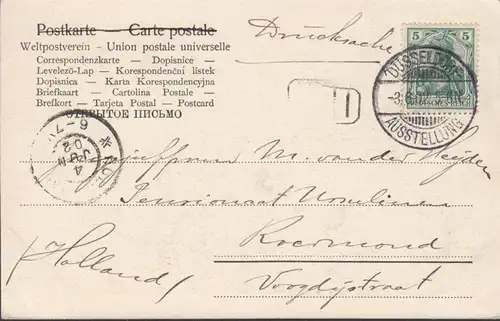 Postkarte — Carte postale
Weltpostverein - Union postale universelle
Correspondenzkarte — Dopisnice —
Levelező-Lap — Korespondenční lístek
Dopisnica — Karta Korespondencyjna
Briefkaart — Cartolina Postale —
Brefkort — Tarjeta Postal — Postcard
ОТКРЫТОЕ ПИСЬМО
Drucksache
5 5
DÜSSELDORF
AUSSTELLUNG
6-7V
4
JUN
02
M. van der Heyden
Pensionaat Ursulinen
Roermond
(Holland)
Voogdijstraat